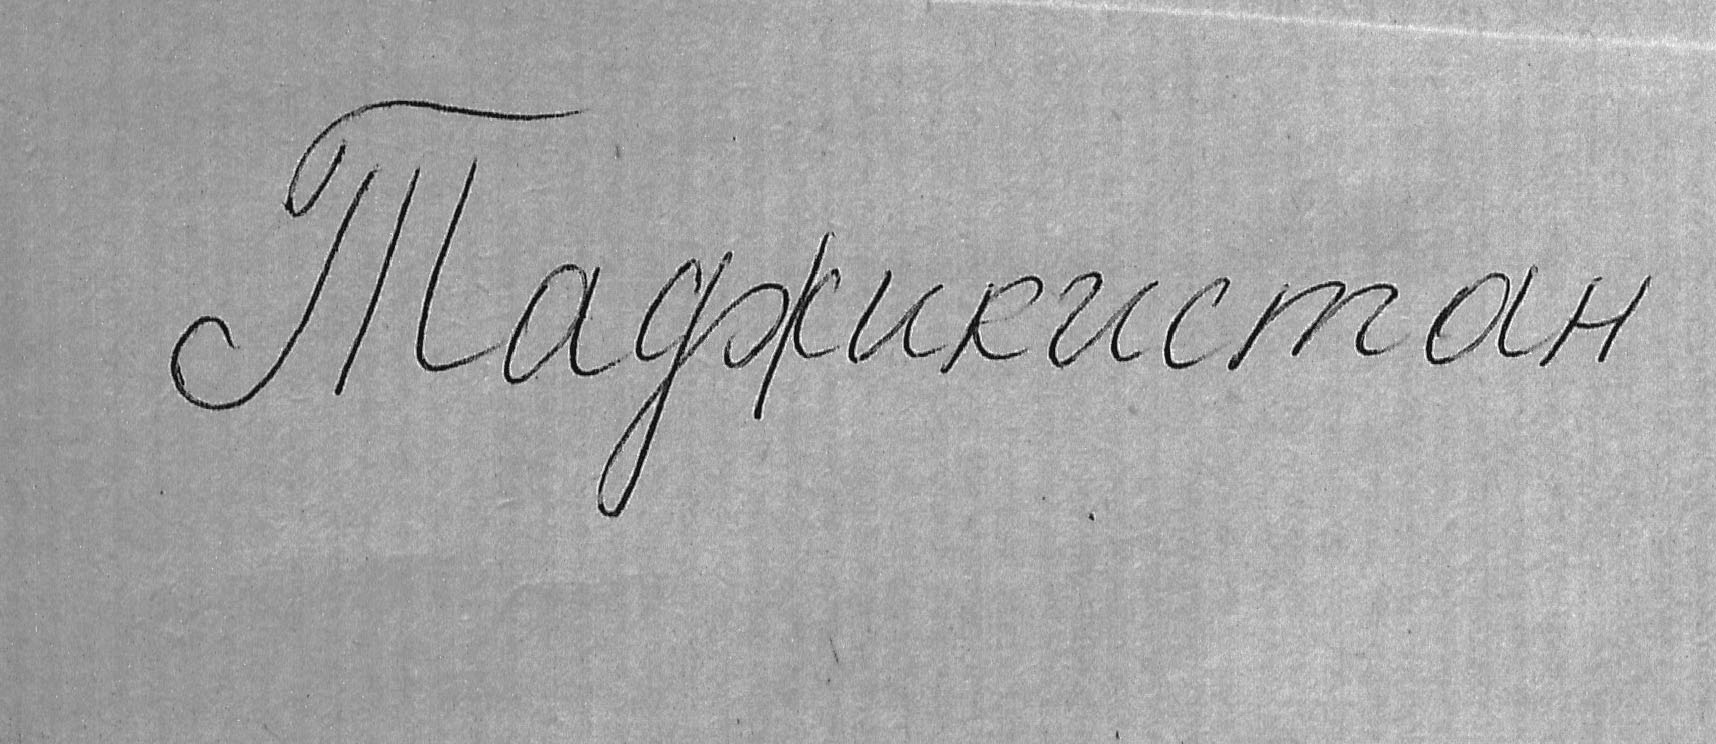 Таджикистан